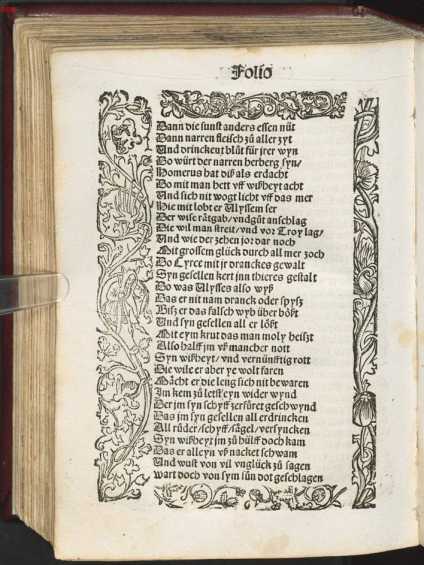 Folio
Dann die sunst anders essen nüt
Dann narren fleisch zů aller zyt
Und drincken blůt für jrer wyn
Do würt der narren herberg syn/
Homerus hat diß als erdacht
Do mit man hett vff wißheyt acht
Und sich nit wogt licht vff das mer
Hie mit lobt er Ulyssem ser
Der wise rätgab/ vnd gůt anschlag
Die wil man streit/ vnd vor Troy lag/
Und wie der zehen jor dar noch
Mit grossem glück durch all mer zoch
Do Cyrce mit jr dranckes gewalt
Syn gesellen kert jnn thieres gestalt
Do was Ulysses also wyß
Das er nit nam dranck oder spyß
Bisz er das falsch wyb über bößt
Und syn gesellen all er lößt
Mit eym krut das man moly heiszt
Also halff jm vß mancher nott
Syn wißheyt/ vnd vernünfftig rott
Die wile er aber ye wolt faren
Mächt er die leng sich nit bewaren
Im kem zů letst eyn wider wynd
Der jm syn schyff zerfůret geschwynd
Das jm syn gesellen all erdrincken
All růder/ schyff/ sägel/ versyncken
Syn wißheyt jm zů hülff doch kam
Das er alleyn vß nacket schwam
Und wust von vil vnglück zů sagen
wart doch von sym sůn dot geschlagen